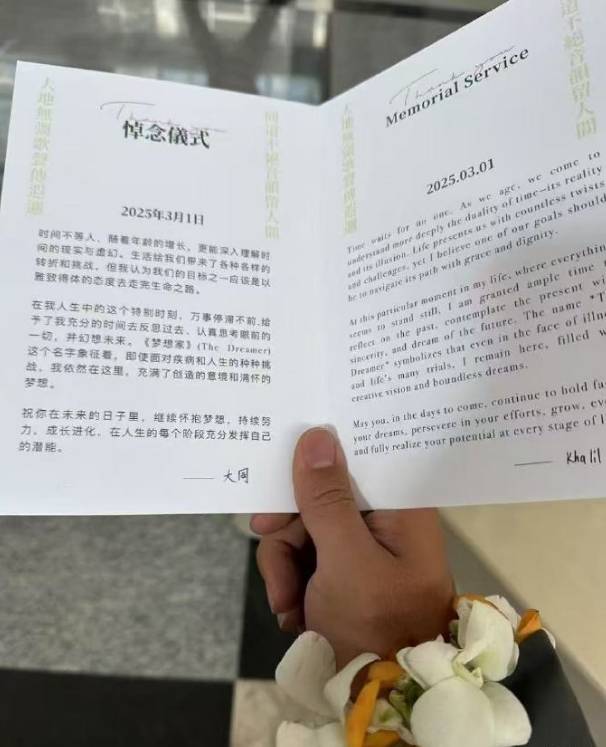 大地無疆歌聲傳迴盪
Thank you
悼念儀式
2025年3月1日
时间不等人、随着年龄的增长、更能深入理解时
间的现实与虚幻。生活给我们带来了各种各样的
转折和挑战，但我认为我们的目标之一应该是以
雅致得体的态度去走完生命之路。
在我人生中的这个特别时刻、万事停滞不前,给
予了我充分的时间去反思过去、认真思考眼前的
一切，并幻想未来。《梦想家》(The Dreamer)
这个名字象征着，即使面对疾病和人生的种种挑
战，我依然在这里，充满了创造的意境和满怀的
梦想。
祝你在未来的日子里，继续怀抱梦想，持续努
力，成长进化，在人生的每个阶段充分发挥自己
的潜能。
—— 大同
音韻留人間
Thank you
Memorial Service
2025.03.01
Time waits for no one. As we age, we come to
understand more deeply the duality of time—its reality
and its illusion. Life presents us with countless twists
and challenges, yet I believe one of our goals should
be to navigate its path with grace and dignity.
At this particular moment in my life, where everything
seems to stand still, I am granted ample time
reflect on the past, contemplate the present
sincerity, and dream of the future. The name
Dreamer" symbolizes that even in the face of
and life's many trials, I remain here, filled
creative vision and boundless dreams.
May you, in the days to come, continue to hold
your dreams, persevere in your efforts, grow,
and fully realize your potential at every stage of
—— Khalil
不絕音韻留人間